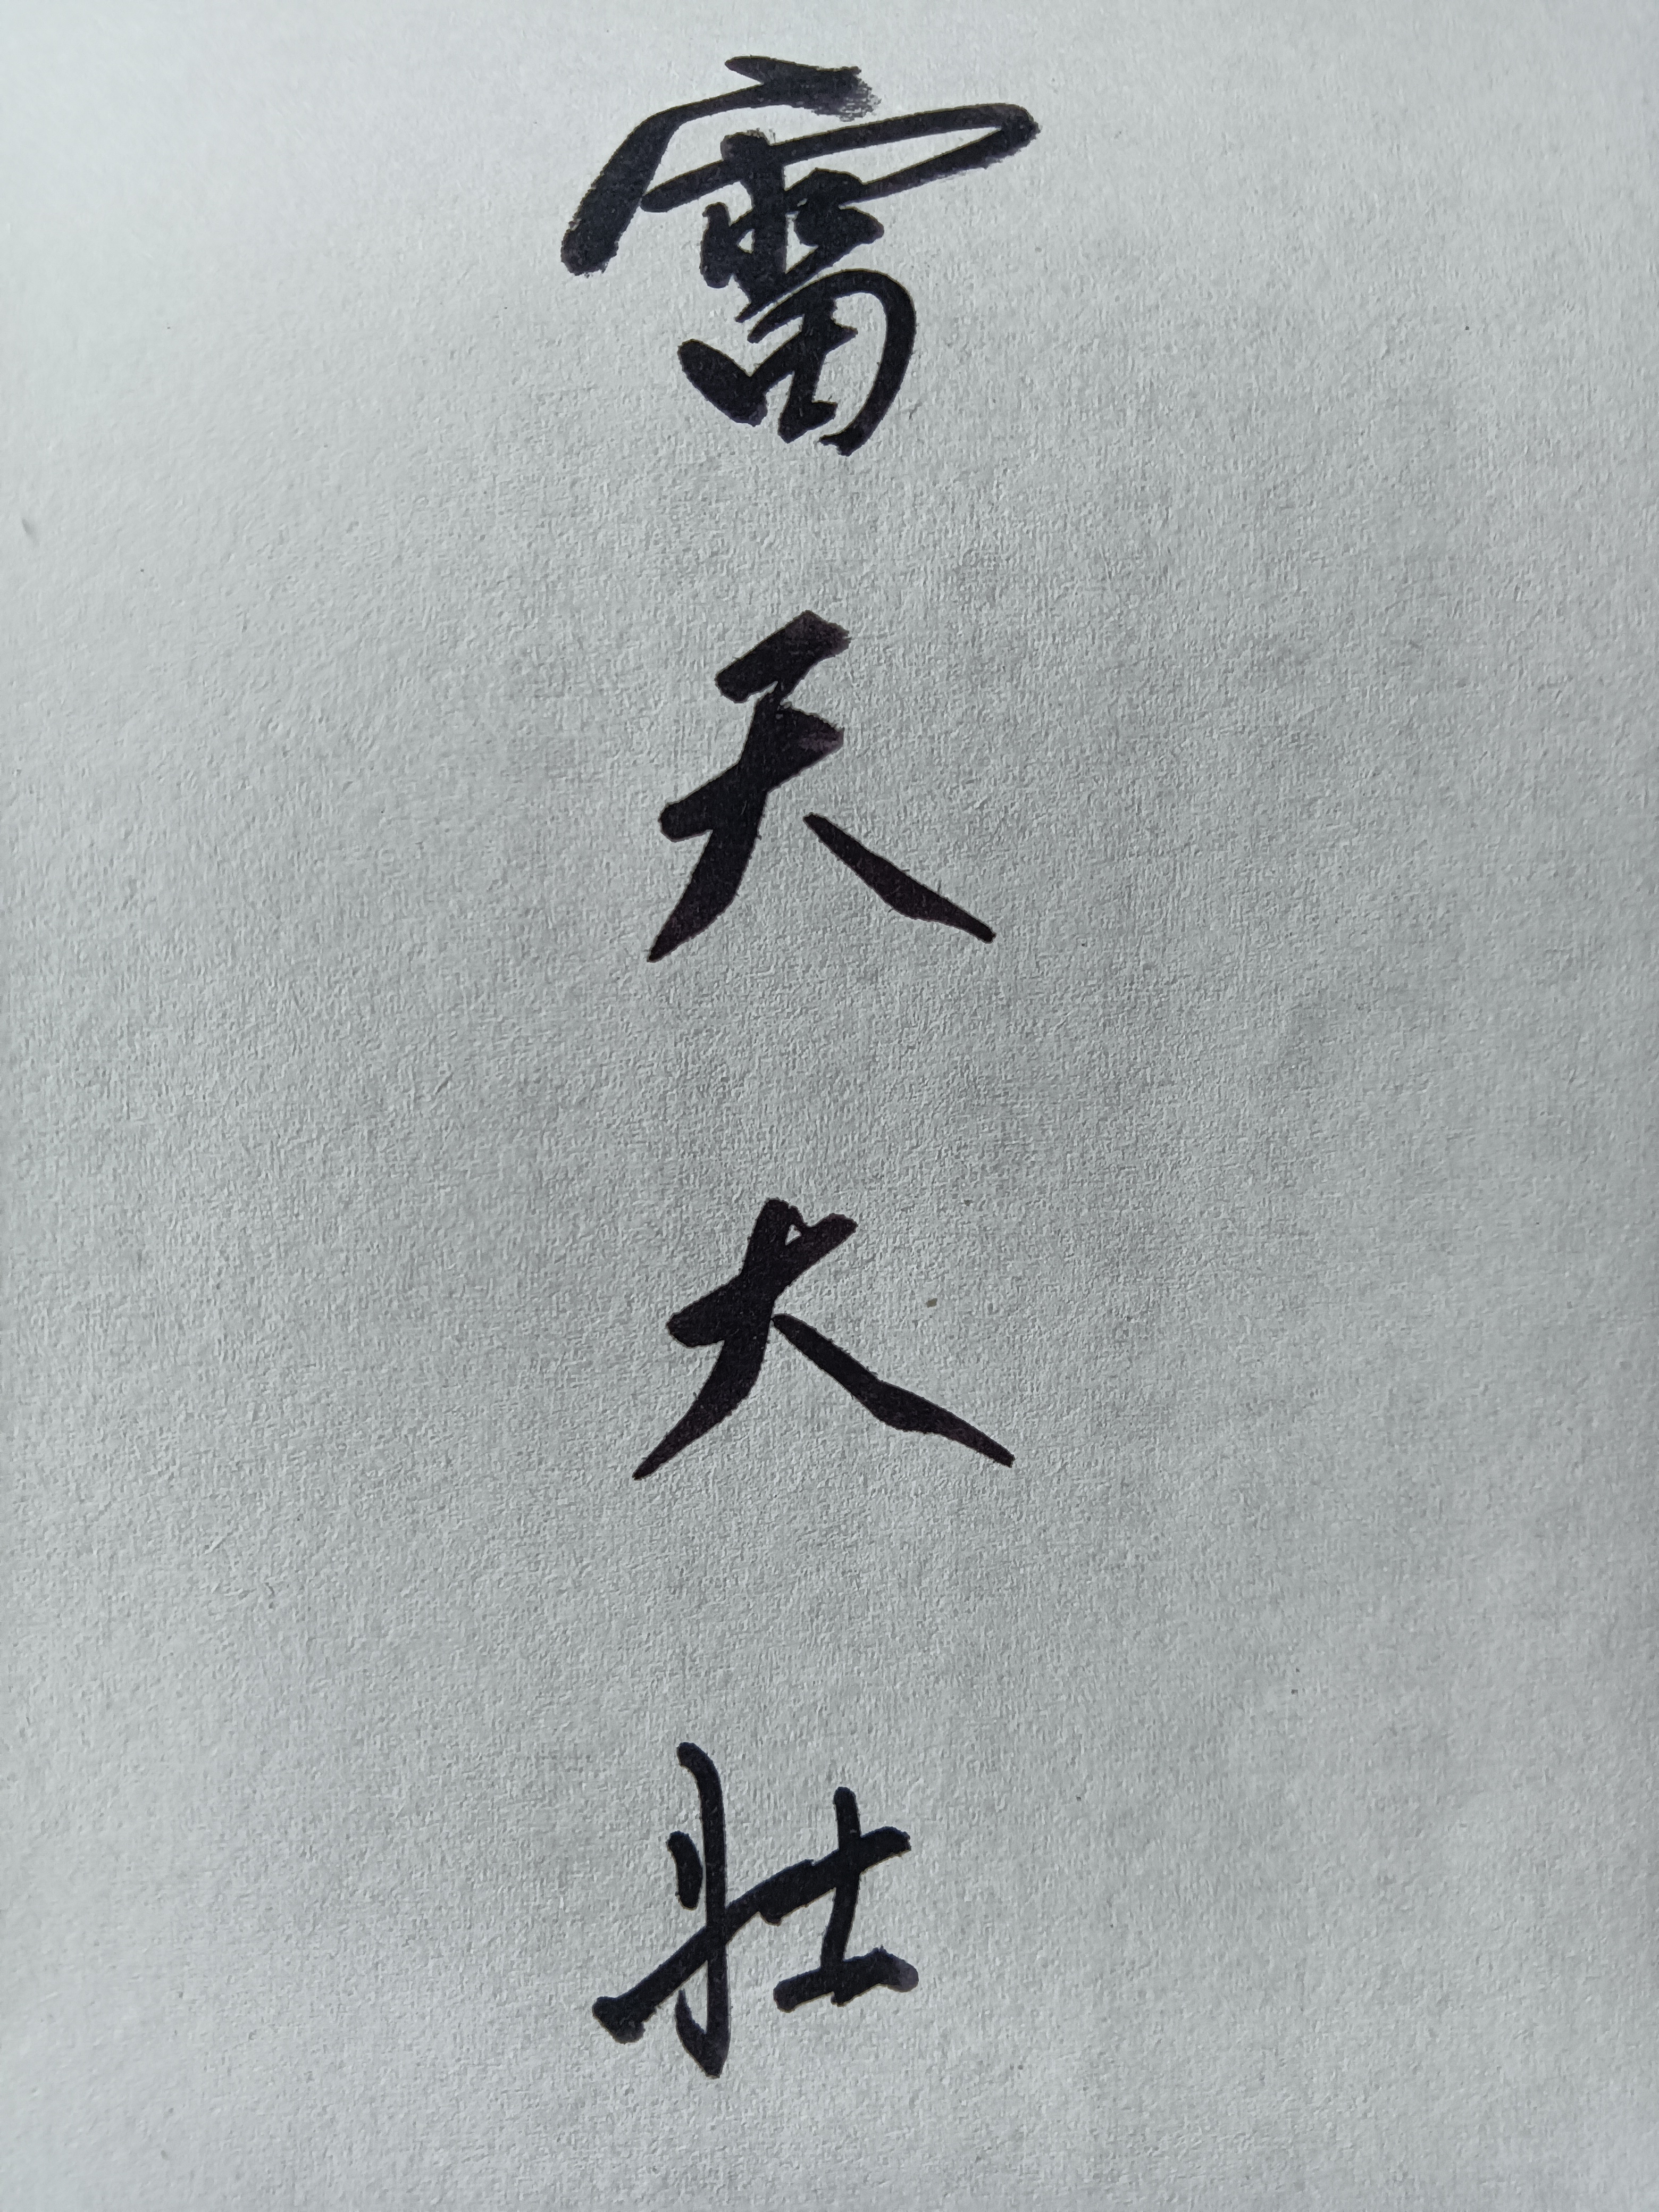 雷天大壮